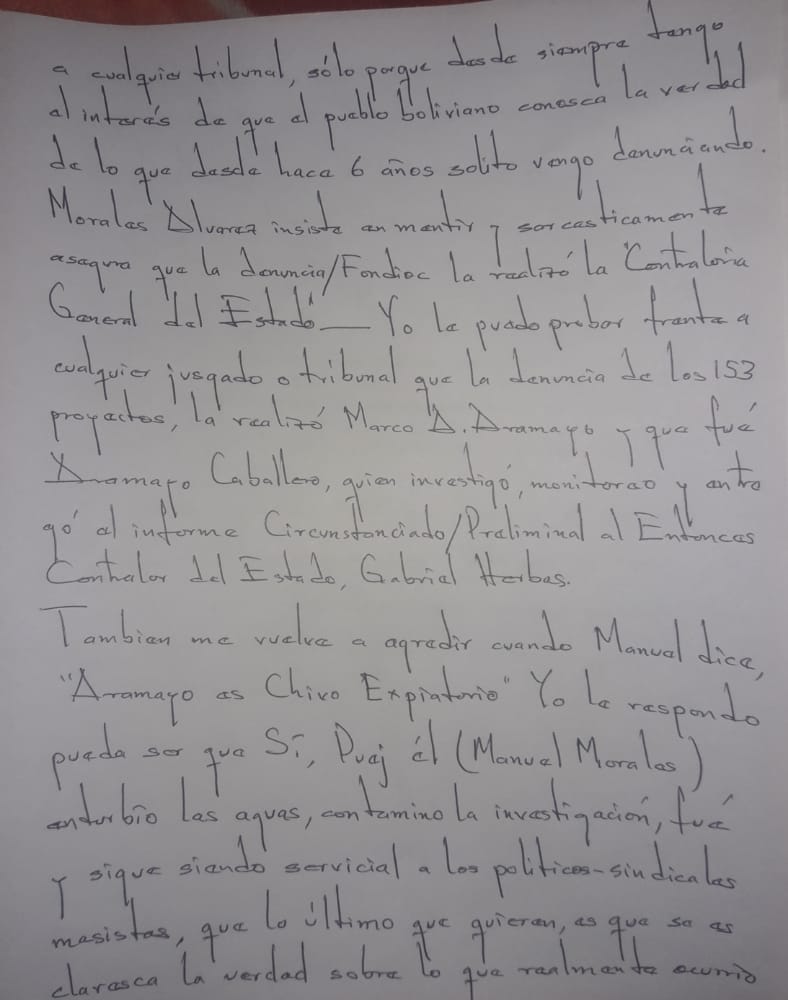 a cualquier tribunal, sólo porque desde siempre tengo
el interés de que el pueblo boliviano conosca la verdad
de lo que desde hace 6 años solito vengo denunciando.
Morales Alvarez insiste en mentir y sarcasticamente
asegura que la denuncia/Fondioc la realizó la "Contraloria
General del Estado" — Yo le puedo probar frente a
cualquier jusgado o tribunal que la denuncia de los 153
proyectos, la realizó Marco A. Aramayo y que fué
Aramayo Caballero, quien investigó, monitoreo y entre
gó el informe Circunstanciado/Preliminal al Entonces
Contralor del Estado, Gabriel Herbas.
Tambien me vuelve a agredir cuando Manuel dice,
"Aramayo es Chivo Expiatorio" Yo le respondo
pueda ser que Sí, Puej él (Manuel Morales)
enturbio las aguas, contamino la investigación, fué
y sigue siendo servicial a los politicos-sindicales
masistas, que lo último que quieren, es que se es
claresca la verdad sobre lo que realmente ocurrio